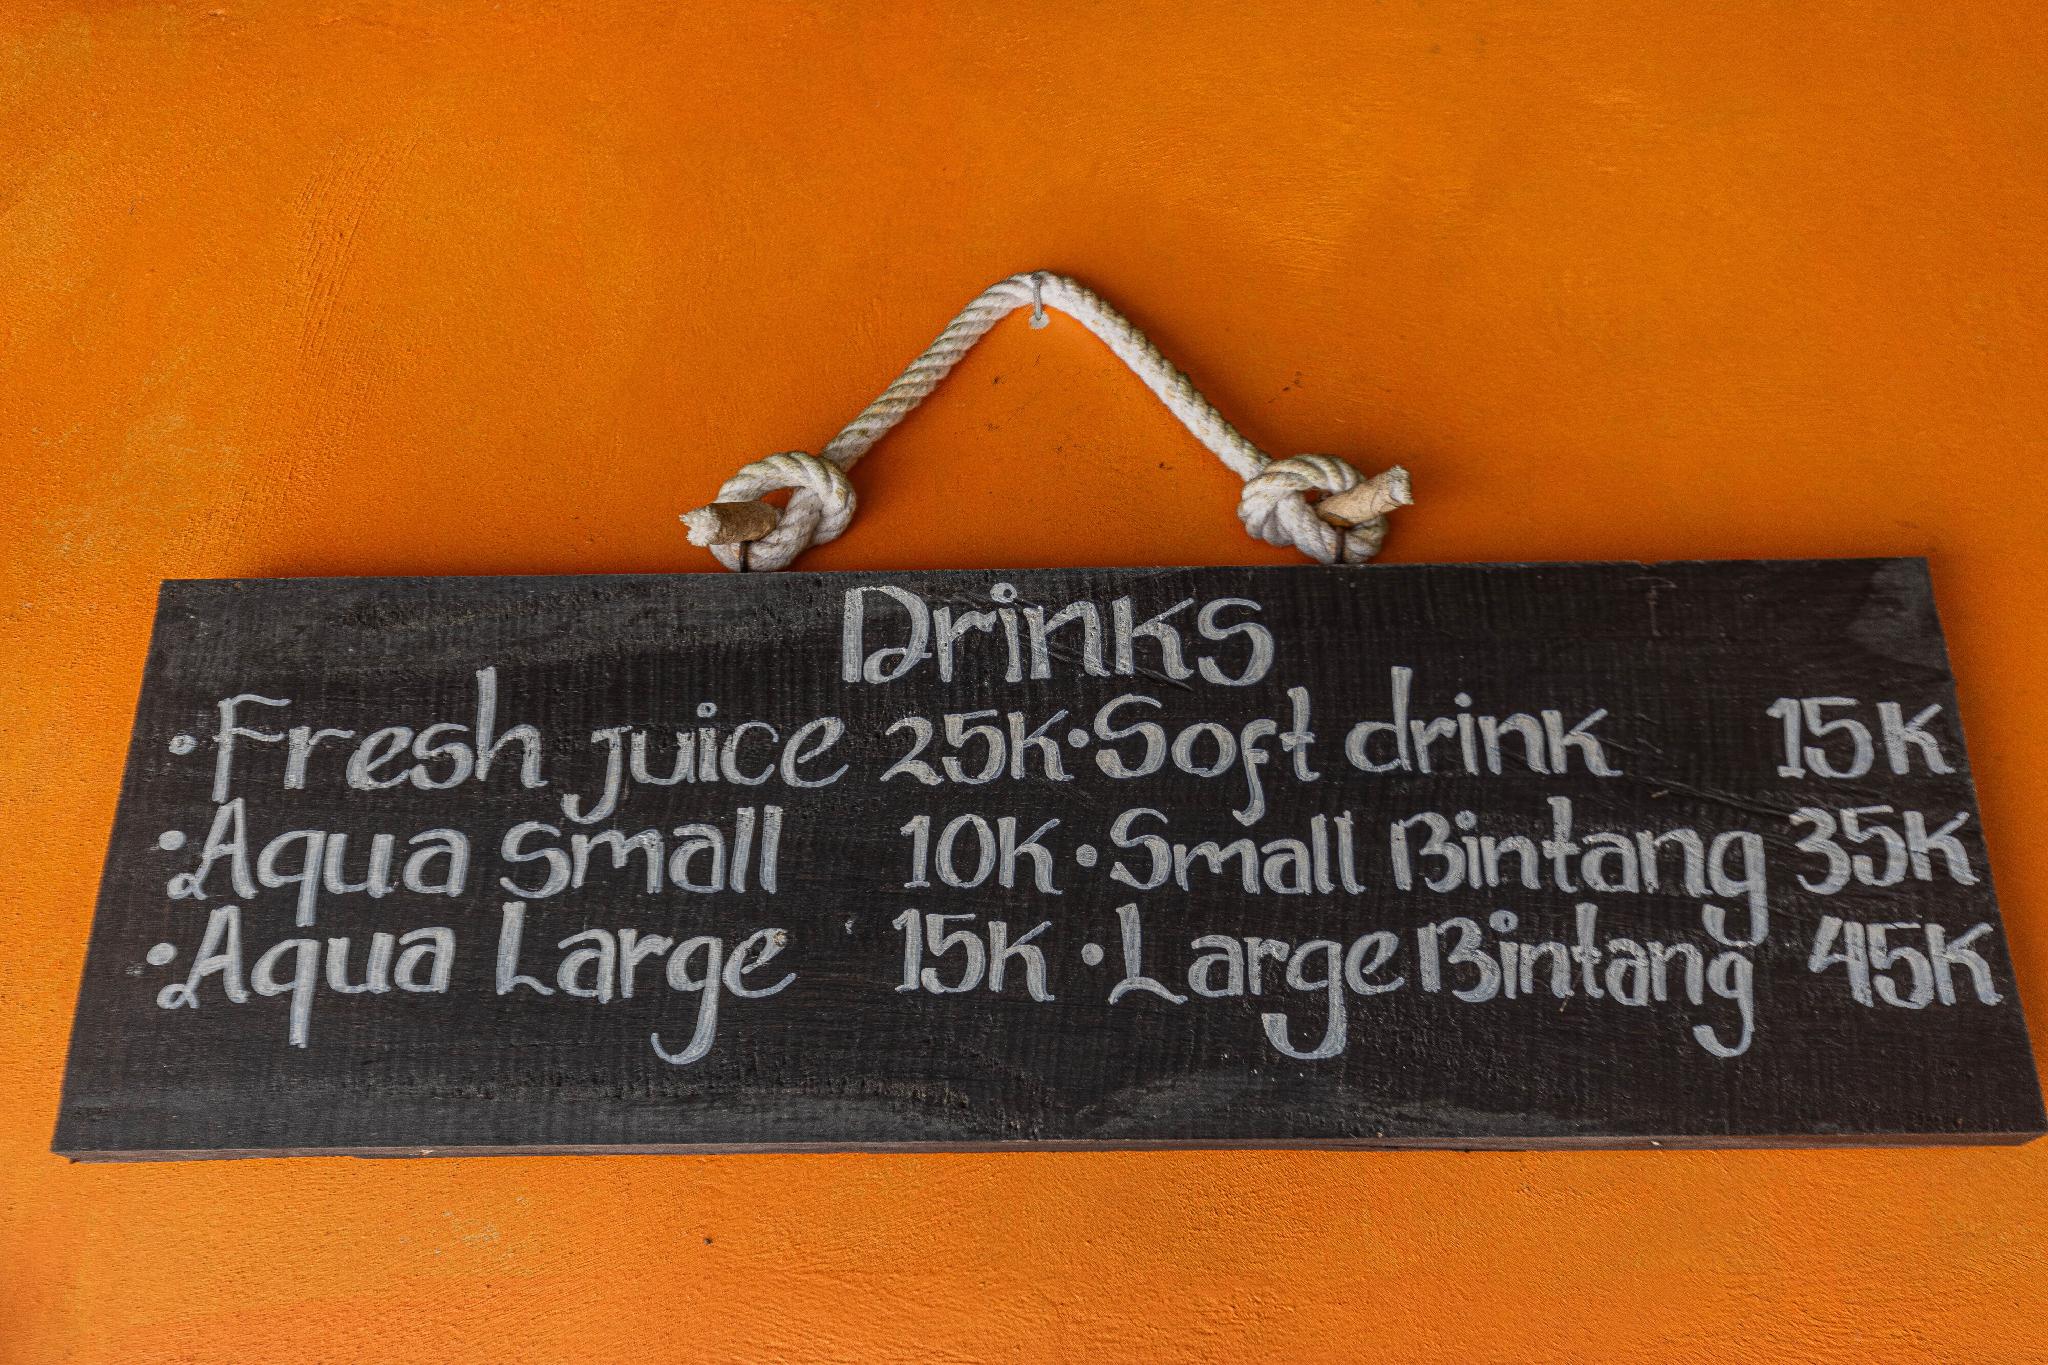 Drinks
• Fresh juice 25K • Soft drink 15K
• Aqua small 10K • Small Bintang 35K
• Aqua Large 15K • Large Bintang 45K